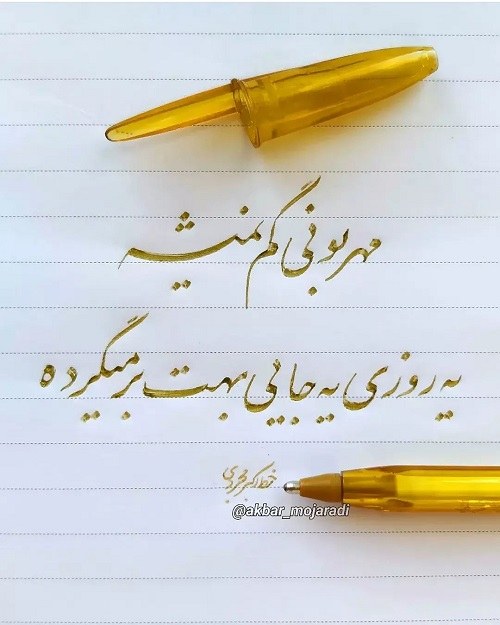 مهربونی گم نمیشه
یه روزی یه جایی بهت برمیگرده
خط اکبر مجردی
@akbar_mojaradi